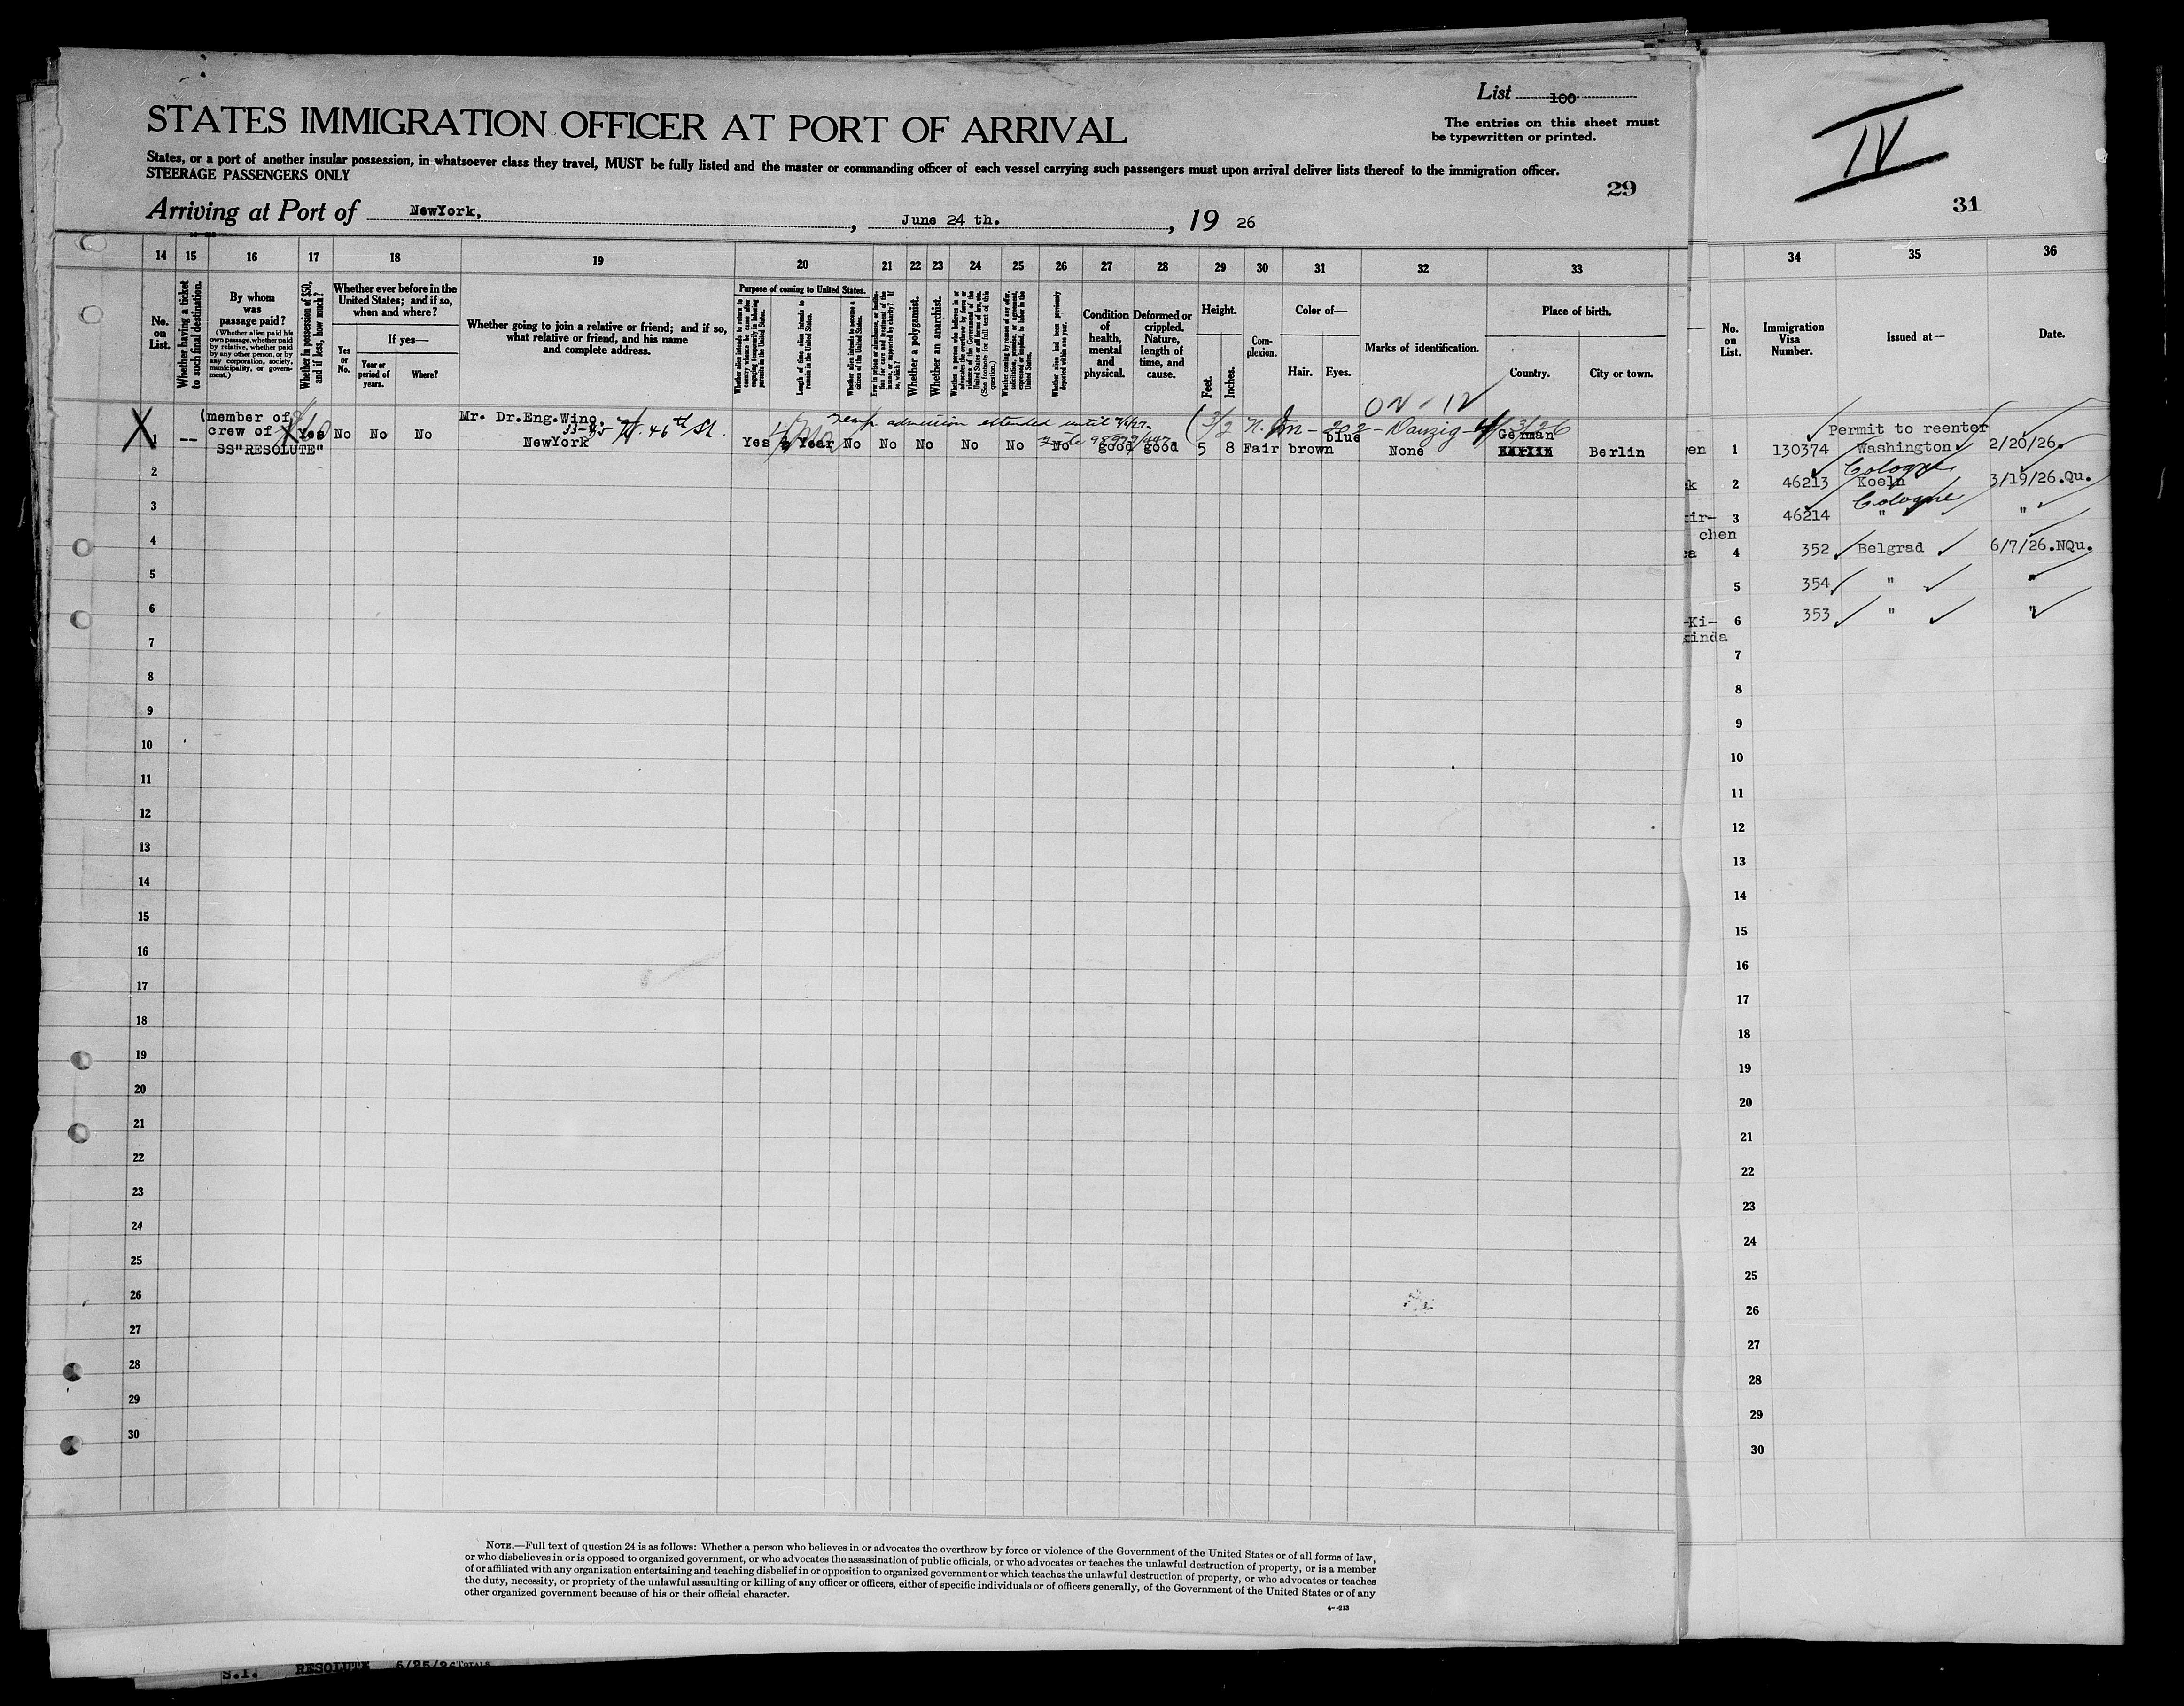 List 100
The entries on this sheet must
be typewritten or printed.
STATES IMMIGRATION OFFICER AT PORT OF ARRIVAL
States, or a port of another insular possession, in whatsoever class they travel, MUST be fully listed and the master or commanding officer of each vessel carrying such passengers must upon arrival deliver lists thereof to the immigration officer.
STEERAGE PASSENGERS ONLY
29
Arriving at Port of NewYork, , June 24 th. , 19 26
14 15 16 17 18 19 20 21 22 23 24 25 26 27 28 29 30 31 32 33
No. on List.
Whether having a ticket to such final destination.
By whom was passage paid?
(Whether alien paid his own passage, whether paid by relative, whether paid by any other person, or by any corporation, society, municipality, or government.)
Whether in possession of $50, and if less, how much?
Whether ever before in the United States; and if so, when and where?
Yes or No.
If yes—
Year or period of years.
Where?
Whether going to join a relative or friend; and if so, what relative or friend, and his name and complete address.
Purpose of coming to United States.
Whether alien intends to return to country whence he came after engaging temporarily in laboring pursuits in the United States.
Length of time alien intends to remain in the United States.
Whether alien intends to become a citizen of the United States.
Ever in prison or almshouse, or institution for care and treatment of the insane, or supported by charity? If so, which?
Whether a polygamist.
Whether an anarchist.
(See footnote for full text of this question.)
Whether alien had been previously deported within one year.
Condition of health, mental and physical.
Deformed or crippled. Nature, length of time, and cause.
Height.
Feet.
Inches.
Complexion.
Color of—
Hair.
Eyes.
Marks of identification.
Place of birth.
Country.
City or town.
X 1 -- (member of crew of SS"RESOLUTE" Yes No No No
Mr. Dr.Eng.Wino. W. 46th St.
NewYork
admission extended until
Yes Year No No No No No No good good 5 8 Fair brown blue None German Berlin
Danzig
2
3
4
5
6
7
8
9
10
11
12
13
14
15
16
17
18
19
20
21
22
23
24
25
26
27
28
29
30
NOTE.—Full text of question 24 is as follows: Whether a person who believes in or advocates the overthrow by force or violence of the Government of the United States or of all forms of law,
or who disbelieves in or is opposed to organized government, or who advocates the assassination of public officials, or who advocates or teaches the unlawful destruction of property, or is a member
of or affiliated with any organization entertaining and teaching disbelief in or opposition to organized government or which teaches the unlawful destruction of property, or who advocates or teaches
the duty, necessity, or propriety of the unlawful assaulting or killing of any officer or officers, either of specific individuals or of officers generally, of the Government of the United States or of any
other organized government because of his or their official character.
S.I. RESOLUTE
IV
31
34 35 36
No. on List.
Immigration Visa Number.
Issued at—
Date.
Permit to reenter
en 1 130374 Washington 2/20/26.
Cologne
k 2 46213 Koeln 3/19/26.Qu.
Cologne
ir- 3 46214 " "
chen
a 4 352 Belgrad 6/7/26.NQu.
5 354 " "
-Ki- 6 353 " "
kinda
7
8
9
10
11
12
13
14
15
16
17
18
19
20
21
22
23
24
25
26
27
28
29
30